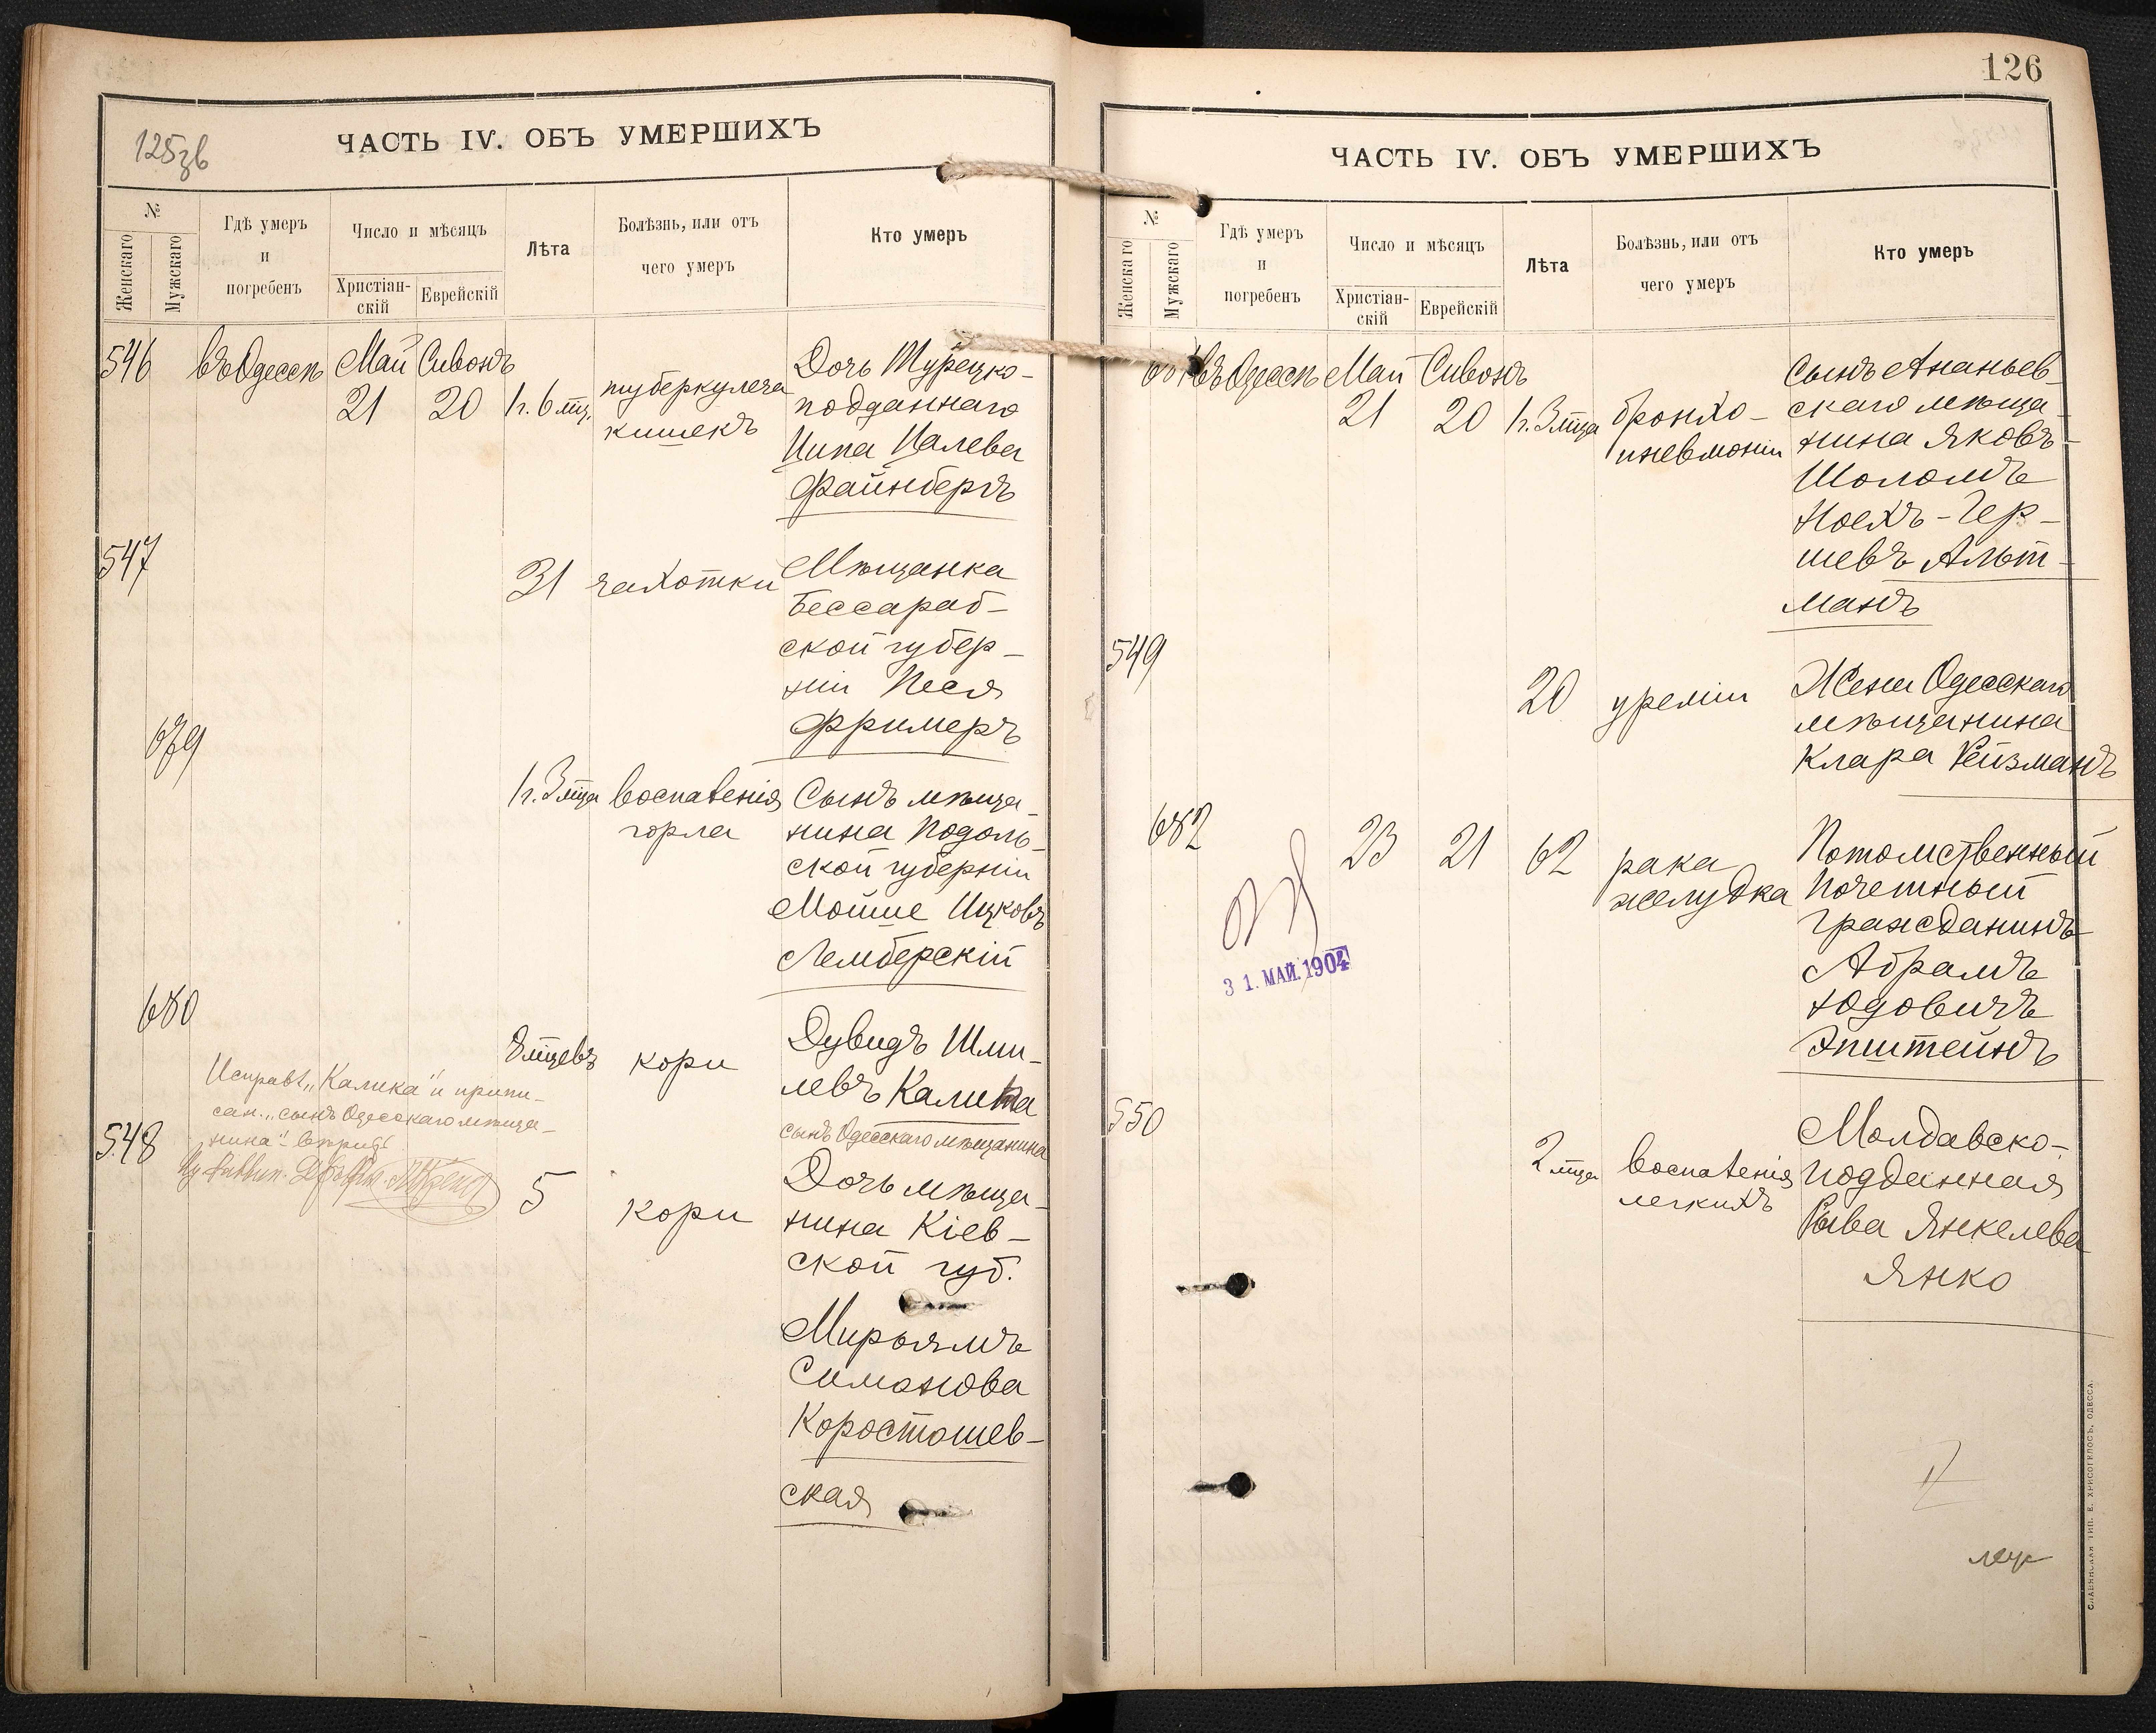 125зв
ЧАСТЬ IV. ОБЪ УМЕРШИХЪ
№
Женскаго
Мужскаго
Гдѣ умеръ
и
погребенъ
Число и мѣсяцъ
Христіан-
скій
Еврейскій
Лѣта
Болѣзнь, или отъ
чего умеръ
Кто умеръ
546 въ Одессѣ Май Сивонъ
21 20 1 г. 6 мц.
туберкулеза
кишекъ
Дочь Турецко-
подданнаго
Ципа Цалева
Файнбергъ
547
31 чахотки
Мѣщанка
Бессараб-
ской губер-
ніи Песя
Фримеръ
679
1 г. 3 мца воспаленія
горла
Сынъ мѣща-
нина Подоль-
ской губерніи
Мойше Ицковъ
Лемберскій
680
8 мцевъ кори
Дувидъ Шми-
левъ Калика
сынъ Одесскаго мѣщанина
Исправл. "Калика" и припи-
сан. "сынъ Одесскаго мѣща-
нина"
548
5 кори
Дочь мѣща-
нина Кіев-
ской губ.
Мирьямъ
Симонова
Коростошев-
ская
126
ЧАСТЬ IV. ОБЪ УМЕРШИХЪ
№
Женскаго
Мужскаго
Гдѣ умеръ
и
погребенъ
Число и мѣсяцъ
Христіан-
скій
Еврейскій
Лѣта
Болѣзнь, или отъ
чего умеръ
Кто умеръ
681 въ Одессѣ Май Сивонъ
21 20 1 г. 3 мца
бронхо-
пневмоніи
Сынъ Ананьев-
скаго мѣща-
нина Яковъ-
Шоломъ
Ноехъ-Гер-
шевъ Альт-
манъ
549
20 уреміи
Жена Одесскаго
мѣщанина
Клара Рейзманъ
682
23 21 62 рака
желудка
Потомственный
Почетный
Гражданинъ
Абрамъ
Юдовичъ
Эпштейнъ
31. МАЙ. 1904
550
2 мца воспаленія
легкихъ
Молдавско-
подданная
Рыва Янкелева
Янко
СЛАВЯНСКАЯ ТИП. Е. ХРИСОГЕЛОСЪ, ОДЕССА.